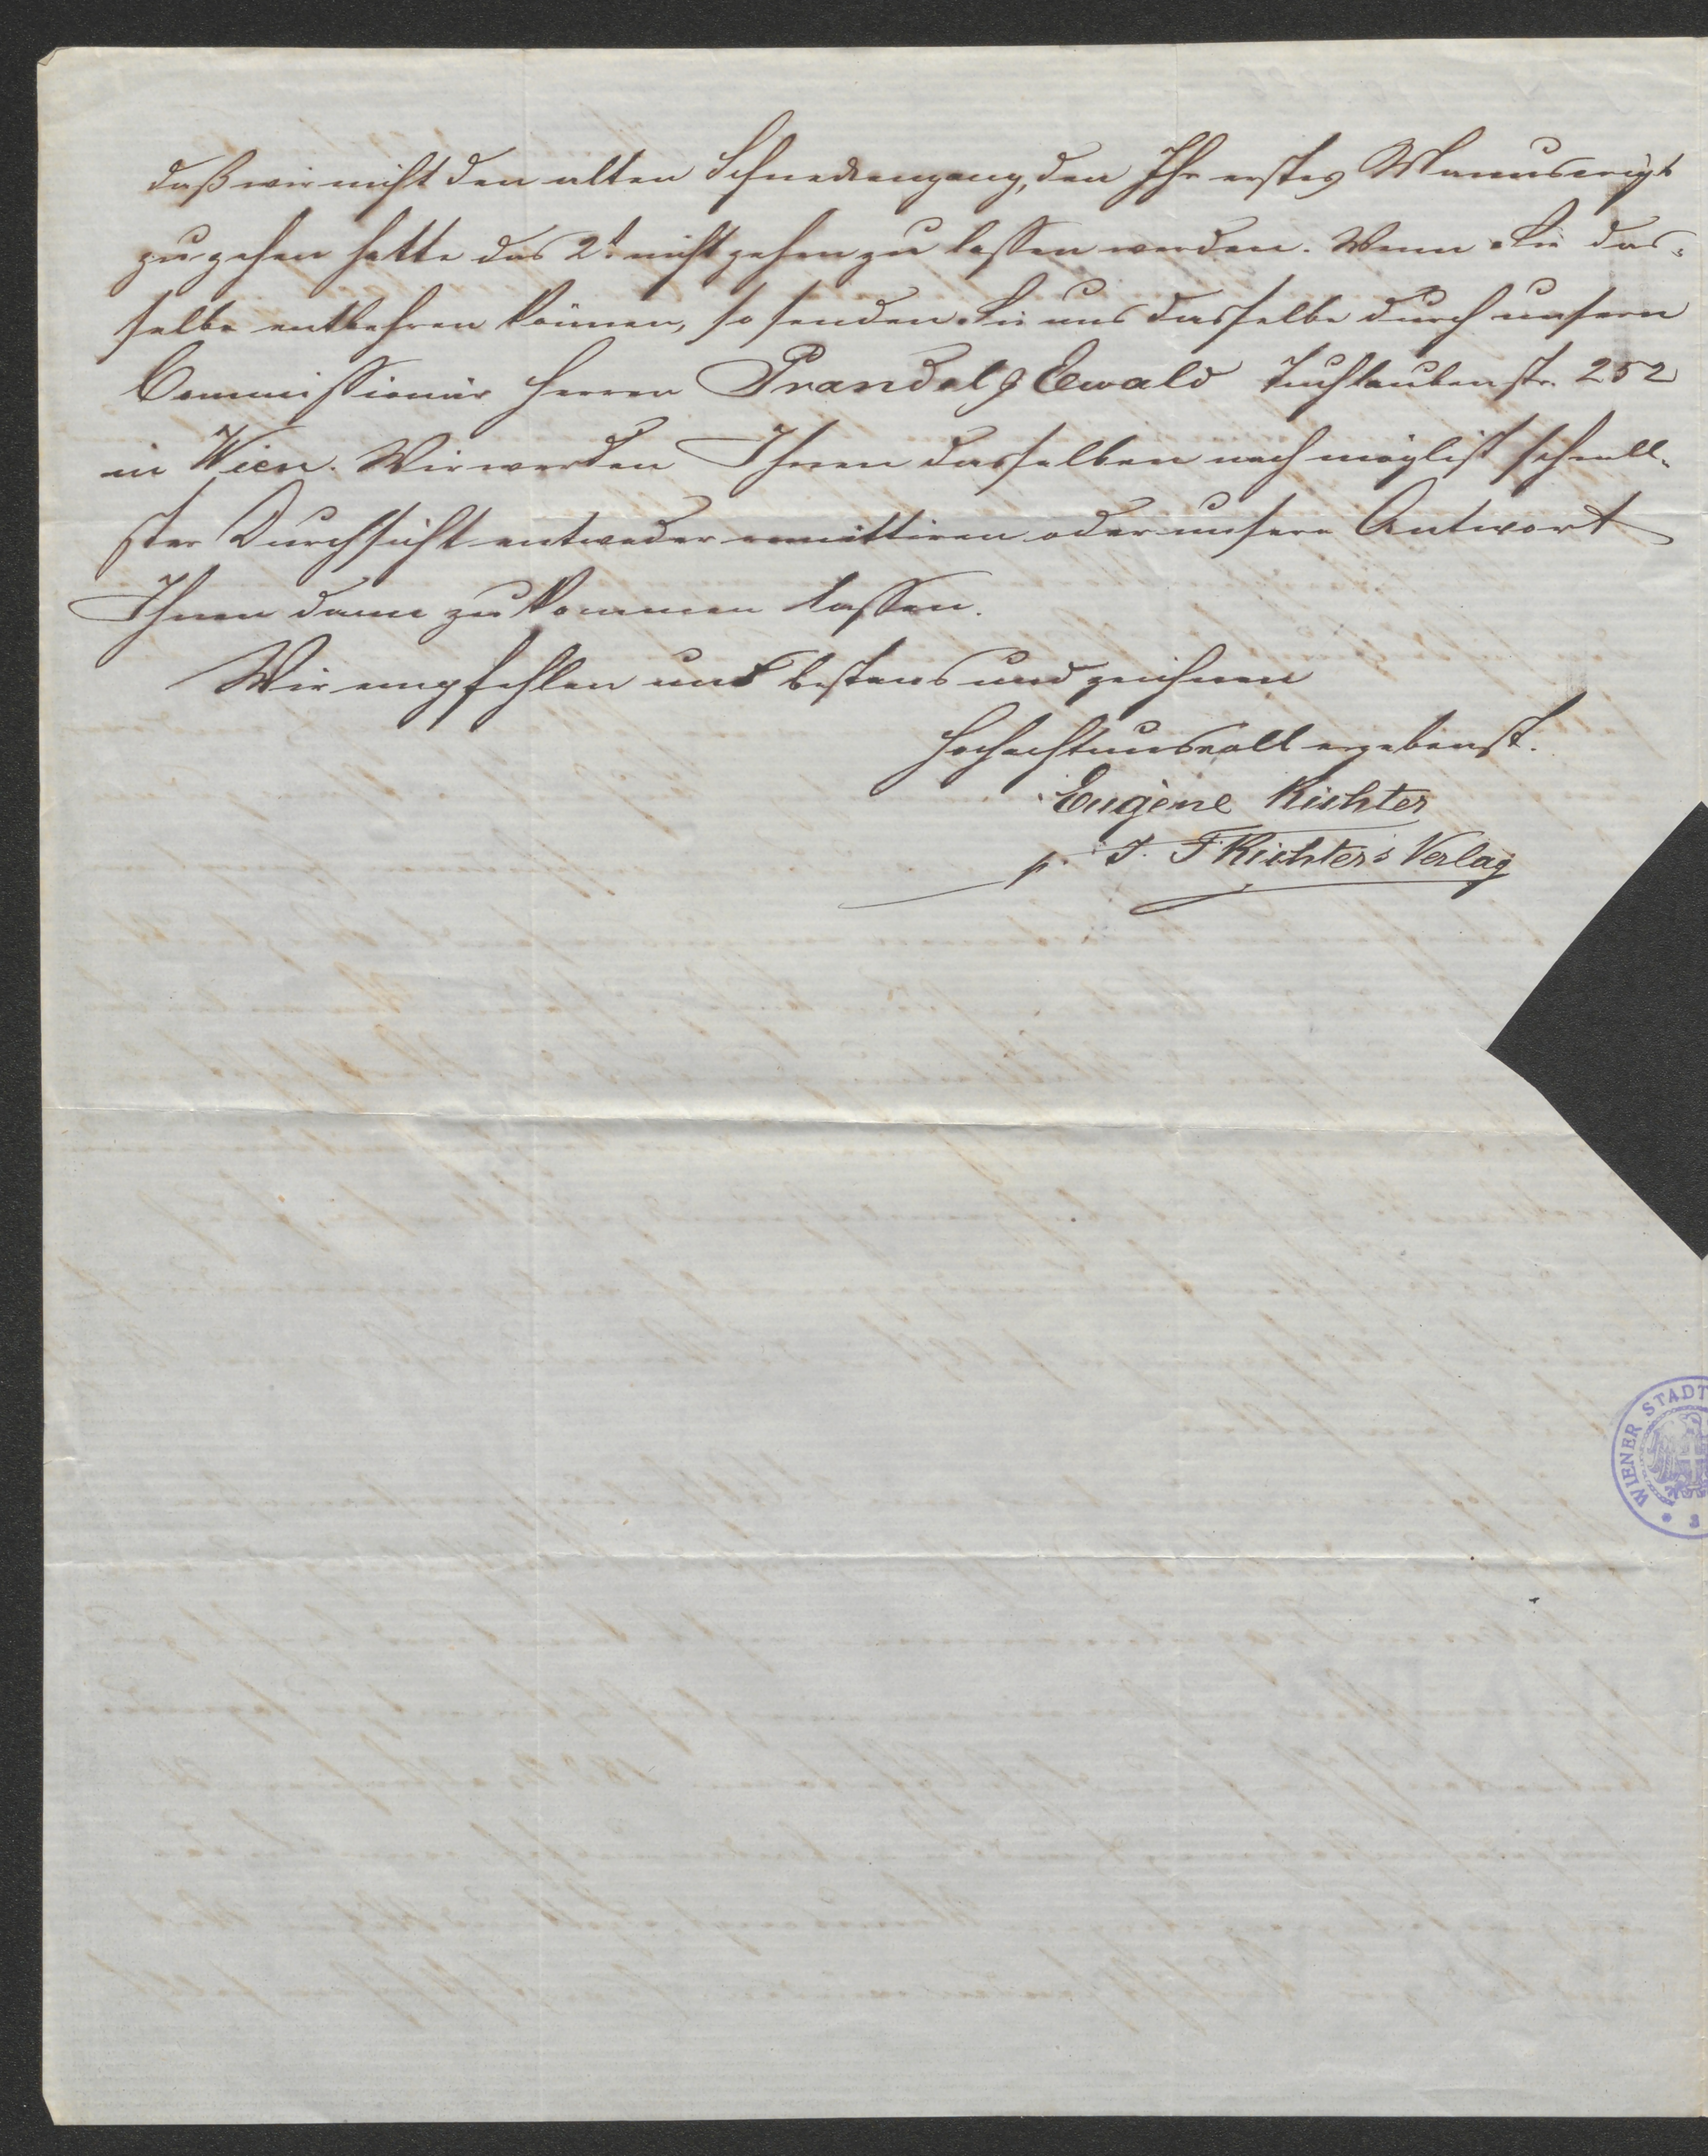 daß wir nicht den alten Schneckengang, den Ihr erstes Manuscript
zu gehen hatte das 2t. nicht gehen zu lassen werden. Wenn Sie das-
selbe entbehren können, so senden Sie uns dasselbe durch unsern
Commissionär Herren Prandel & Ewald Tuchlauben str. 252
in Wien. Wir werden Ihnen dasselben nach möglist schnell-
ster Durchsicht entweder remittiren oder unsere Antwort
Ihnen dann zu kommen lassen.
Wir empfehlen uns bestens und zeichnen
Hochachtungsvoll ergebenst.
Eugène Richter
p. J. F Richter's Verlag
WIENER STADT